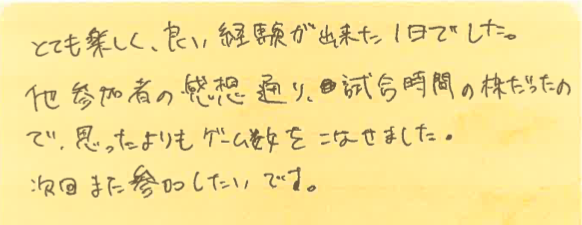 とても楽しく、良い経験が出来た1日でした。
他参加者の感想通り、試合時間の株だったの
で、思ったよりもゲーム数をこなせました。
次回また参加したいです。